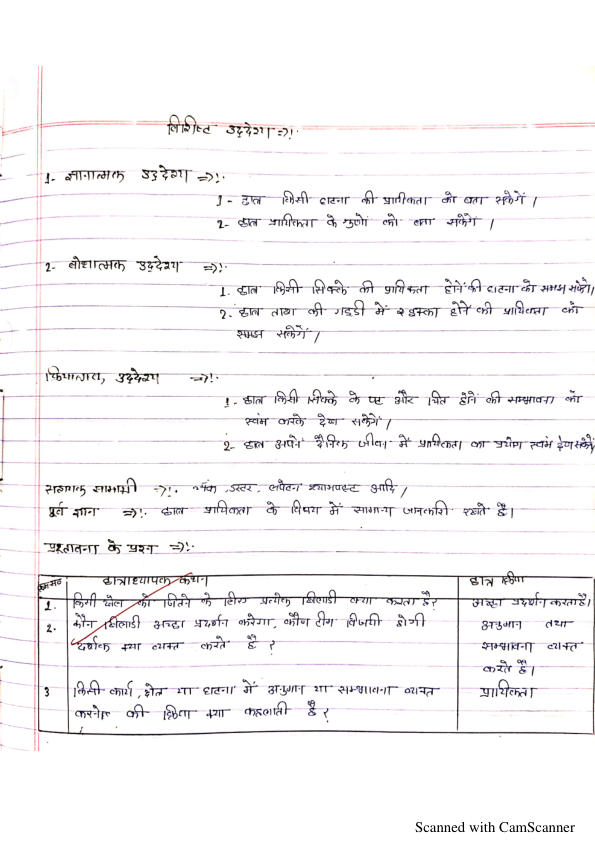 विशिष्ट उद्देश्य =>:-
1- ज्ञानात्मक उद्देश्य =>:-
1- छात्र किसी घटना की प्रायिकता को बता सकेगें ।
2- छात्र प्रायिकता के गुणों को बता सकेंगे ।
2- बोधात्मक उद्देश्य =>:-
1. छात्र किसी सिक्के की प्रायिकता होने की घटना को समझ सकेंगे।
2. छात्र ताश की गड्डी में इक्का होने की प्रायिकता को
समझ सकेगें ।
क्रियात्मक, उद्देश्य =>:-
1- छात्र किसी सिक्के के पट और चित होने की सम्भावना को
स्वंम करके देख सकेगें ।
2- छात्र अपने दैनिक जीवन में प्रायिकता का प्रयोग स्वंम देख सकेंगे
सहायक सामग्री =>:- चॉक, डस्टर, लपेटन श्यामपट्ट आदि ।
पूर्व ज्ञान =>:- छात्र प्रायिकता के विषय में सामान्य जानकारी रखते है।
प्रस्तावना के प्रश्न =>:-
क्रम सं० छात्राध्यापक कथन छात्र क्रिया
1. किसी खेल को जितने के लिए प्रत्येक खिलाडी क्या करता है? अच्छा प्रदर्शन करता है।
2. कौन खिलाडी अच्छा प्रदर्शन करेगा, कौन टीम विजयी होगी अनुमान तथा
दर्शक क्या व्यक्त करते है ? सम्भावना व्यक्त
करते है।
3 किसी कार्य, क्षेत्र या घटना में अनुमान या सम्भावना व्यक्त प्रायिकता
करने की क्रिया क्या कहलाती है ?
Scanned with CamScanner